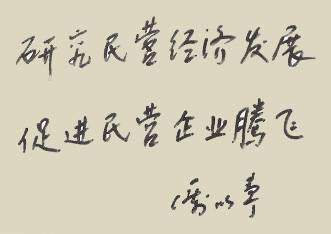 研究民营经济发展
促进民营企业腾飞
厉以宁